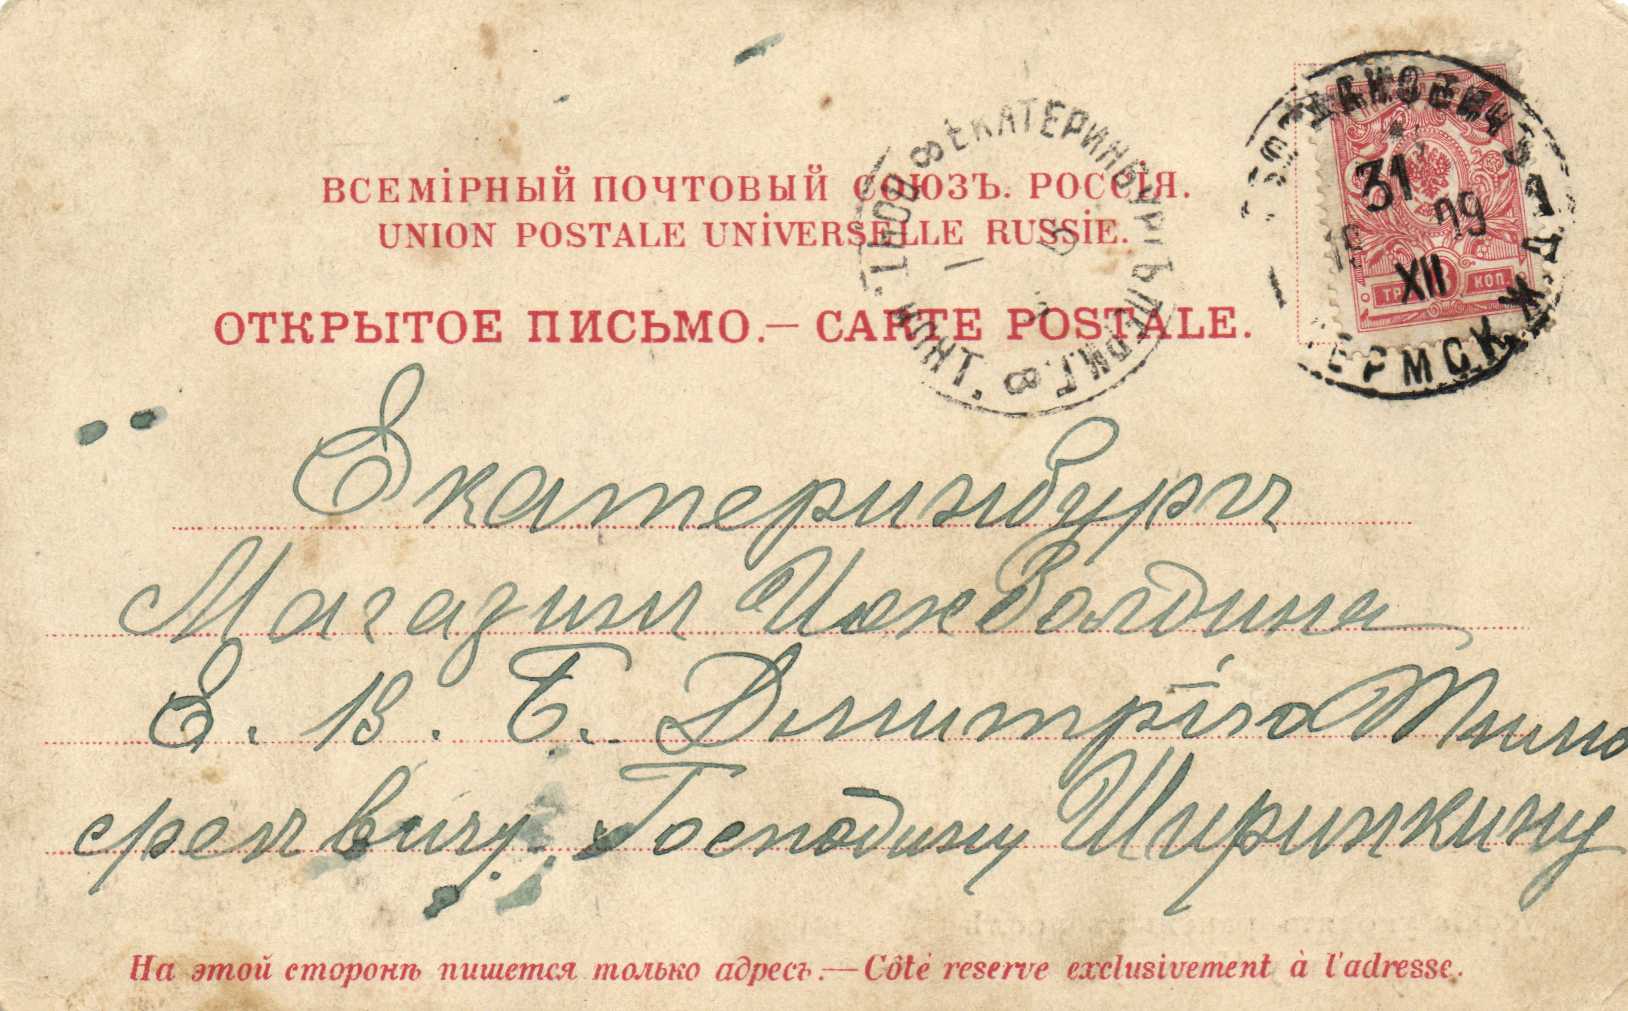 ВСЕМІРНЫЙ ПОЧТОВЫЙ СОЮЗЪ. РОССІЯ.
UNION POSTALE UNIVERSELLE RUSSIE.
ОТКРЫТОЕ ПИСЬМО.— CARTE POSTALE.
ЕКАТЕРИНБУРГЪ ПЕРМ.Г. 8 ПОЧТ. 8
31 XII 09
ТРИ 3 КОП.
Екатеринбургъ
Магазинъ
Е. В. Б. Дмитрію Тимо
феевичу. Господину Ширинкину
На этой сторонѣ пишется только адресъ.—Côté reserve exclusivement à l'adresse.